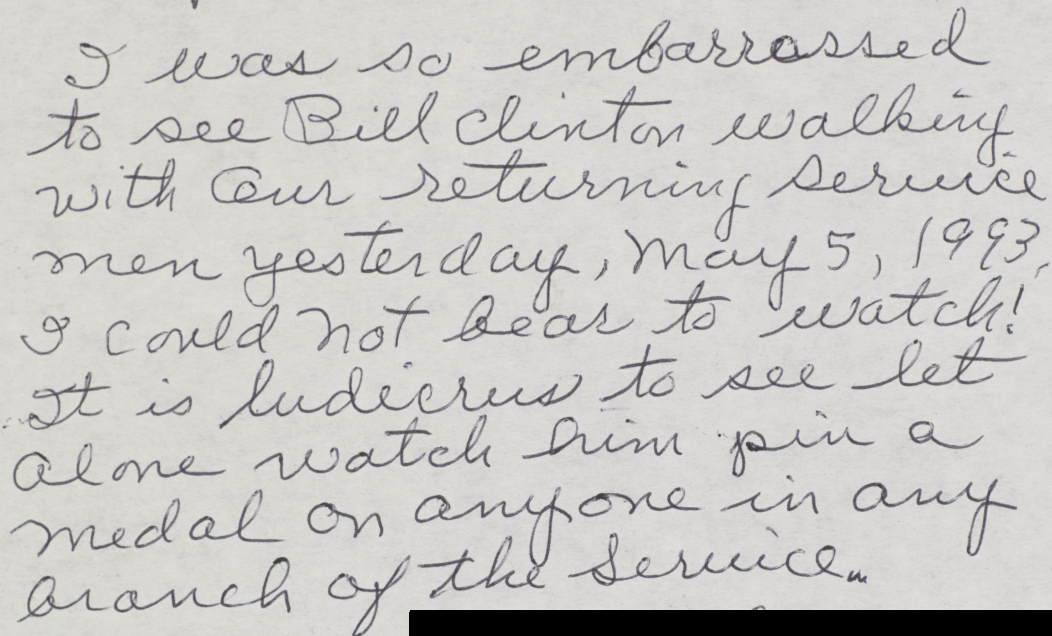 I was so embarrassed
to see Bill Clinton walking
with our returning service
men yesterday, May 5, 1993.
I could not bear to watch!
It is ludicrus to see let
alone watch him pin a
medal on anyone in any
branch of the service.